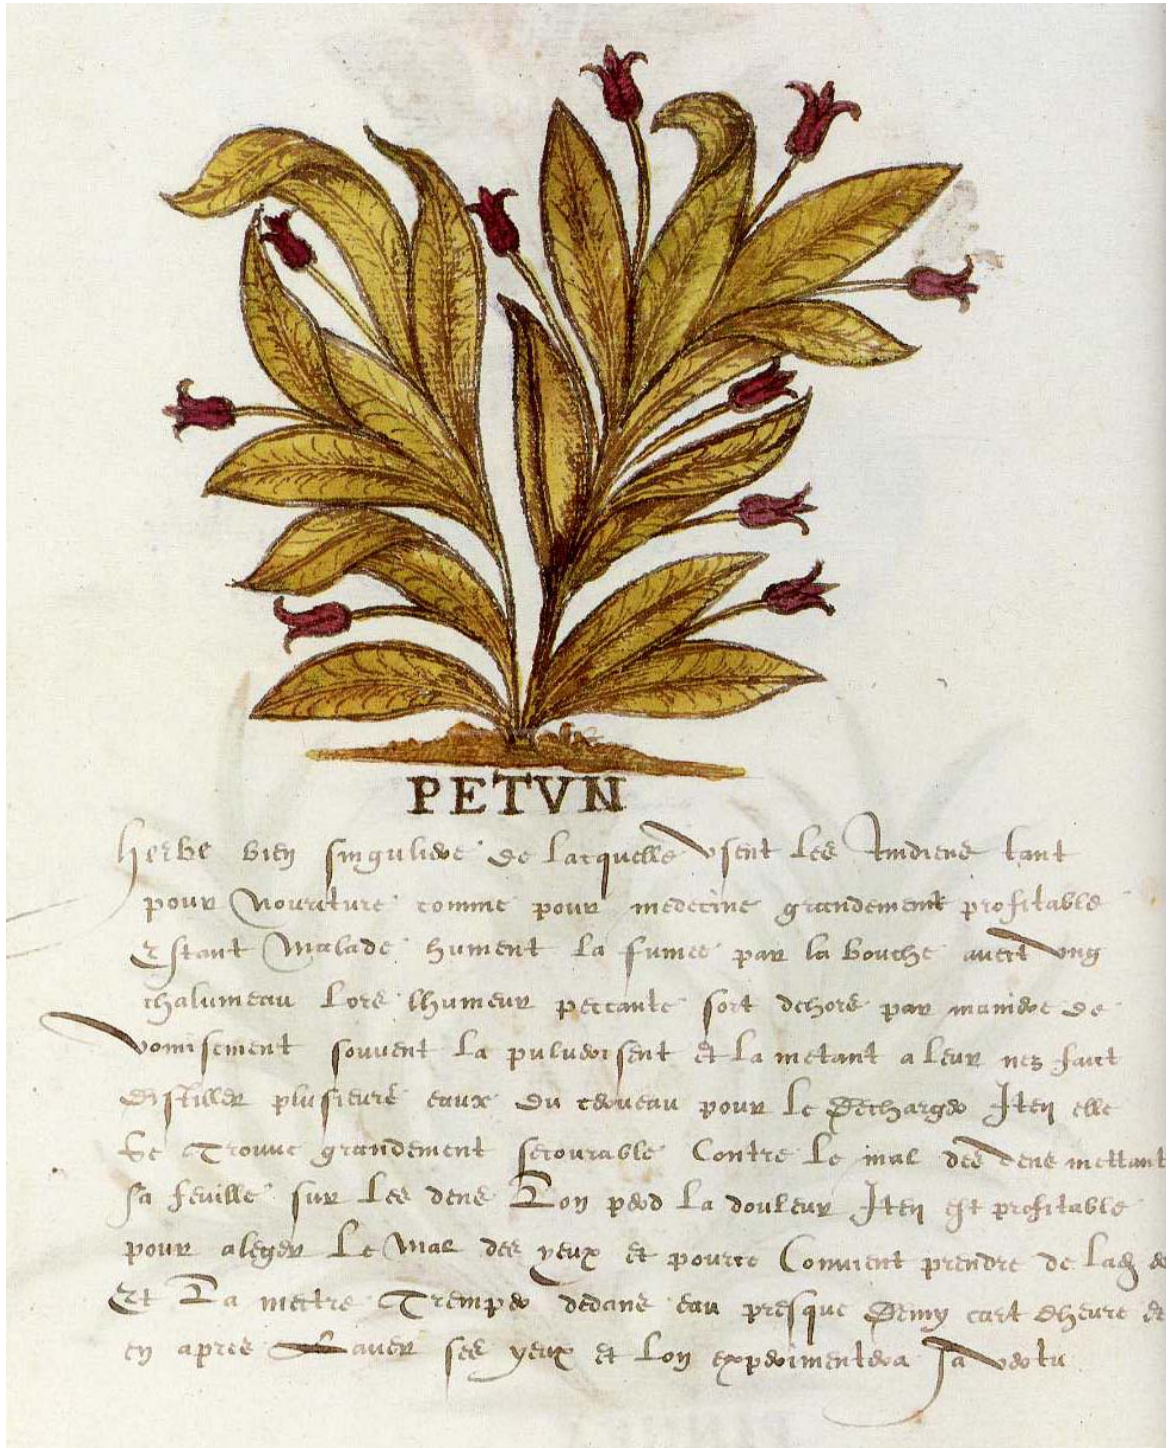 PETVN
herbe bien singuliere de lacquelle usent les Indiens tant
pour Nouriture comme pour medecine grandement profitable
Estant Malade hument la fumee par la bouche avect ung
chalumeau Lors lhumeur peccante sort dehors par maniere de
vomisement souvent la pulverisent et la metant a leur nes faict
distiller plusieurs eaux du cerveau pour le Decharger Iten elle
se Trouve grandement secourable Contre le mal des dens mettant
sa feuille sur les dens Lon perd la douleur Iten est profitable
pour aleger le Mal des yeux et pource Convient prendre de
Et La mettre Tremper dedans eau presque Demy cart dheure
en apres Laver ses yeux et lon experimentera sa vertu